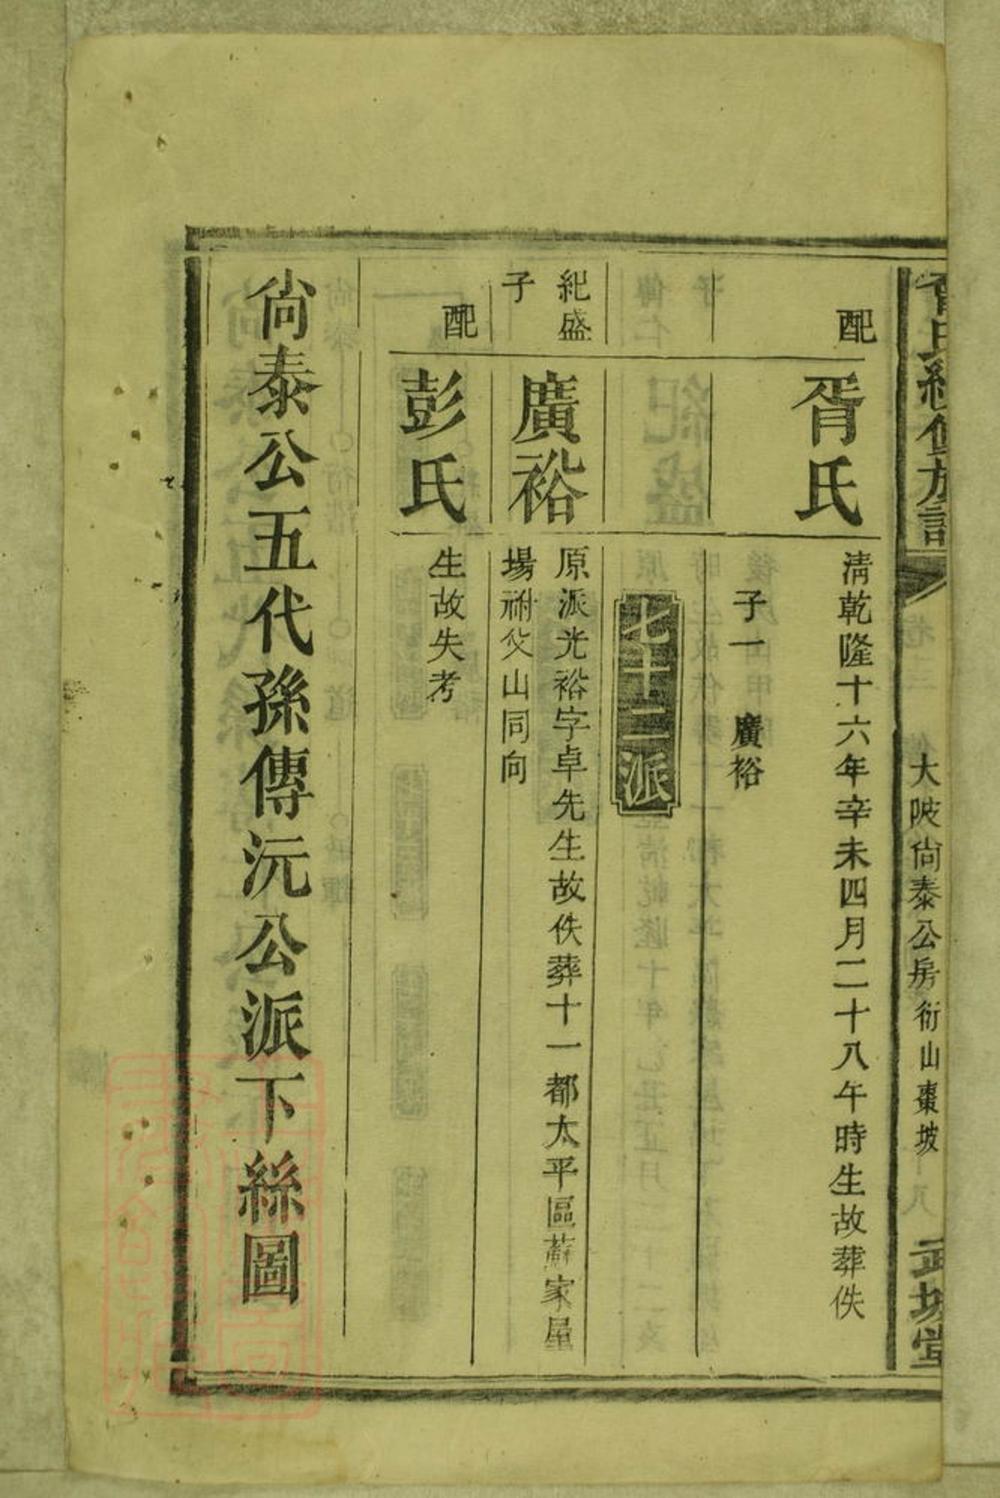 曾氏續修族譜
大陂尙泰公房衍山棗坡
武城堂
配
胥氏
淸乾隆十六年辛未四月二十八午時生故葬佚
子一 廣裕
七十二派
紀盛
子
廣裕
原派光裕字卓先生故佚葬十一都太平區蘇家屋
場祔父山同向
配
彭氏
生故失考
尙泰公五代孫傳沅公派下絲圖